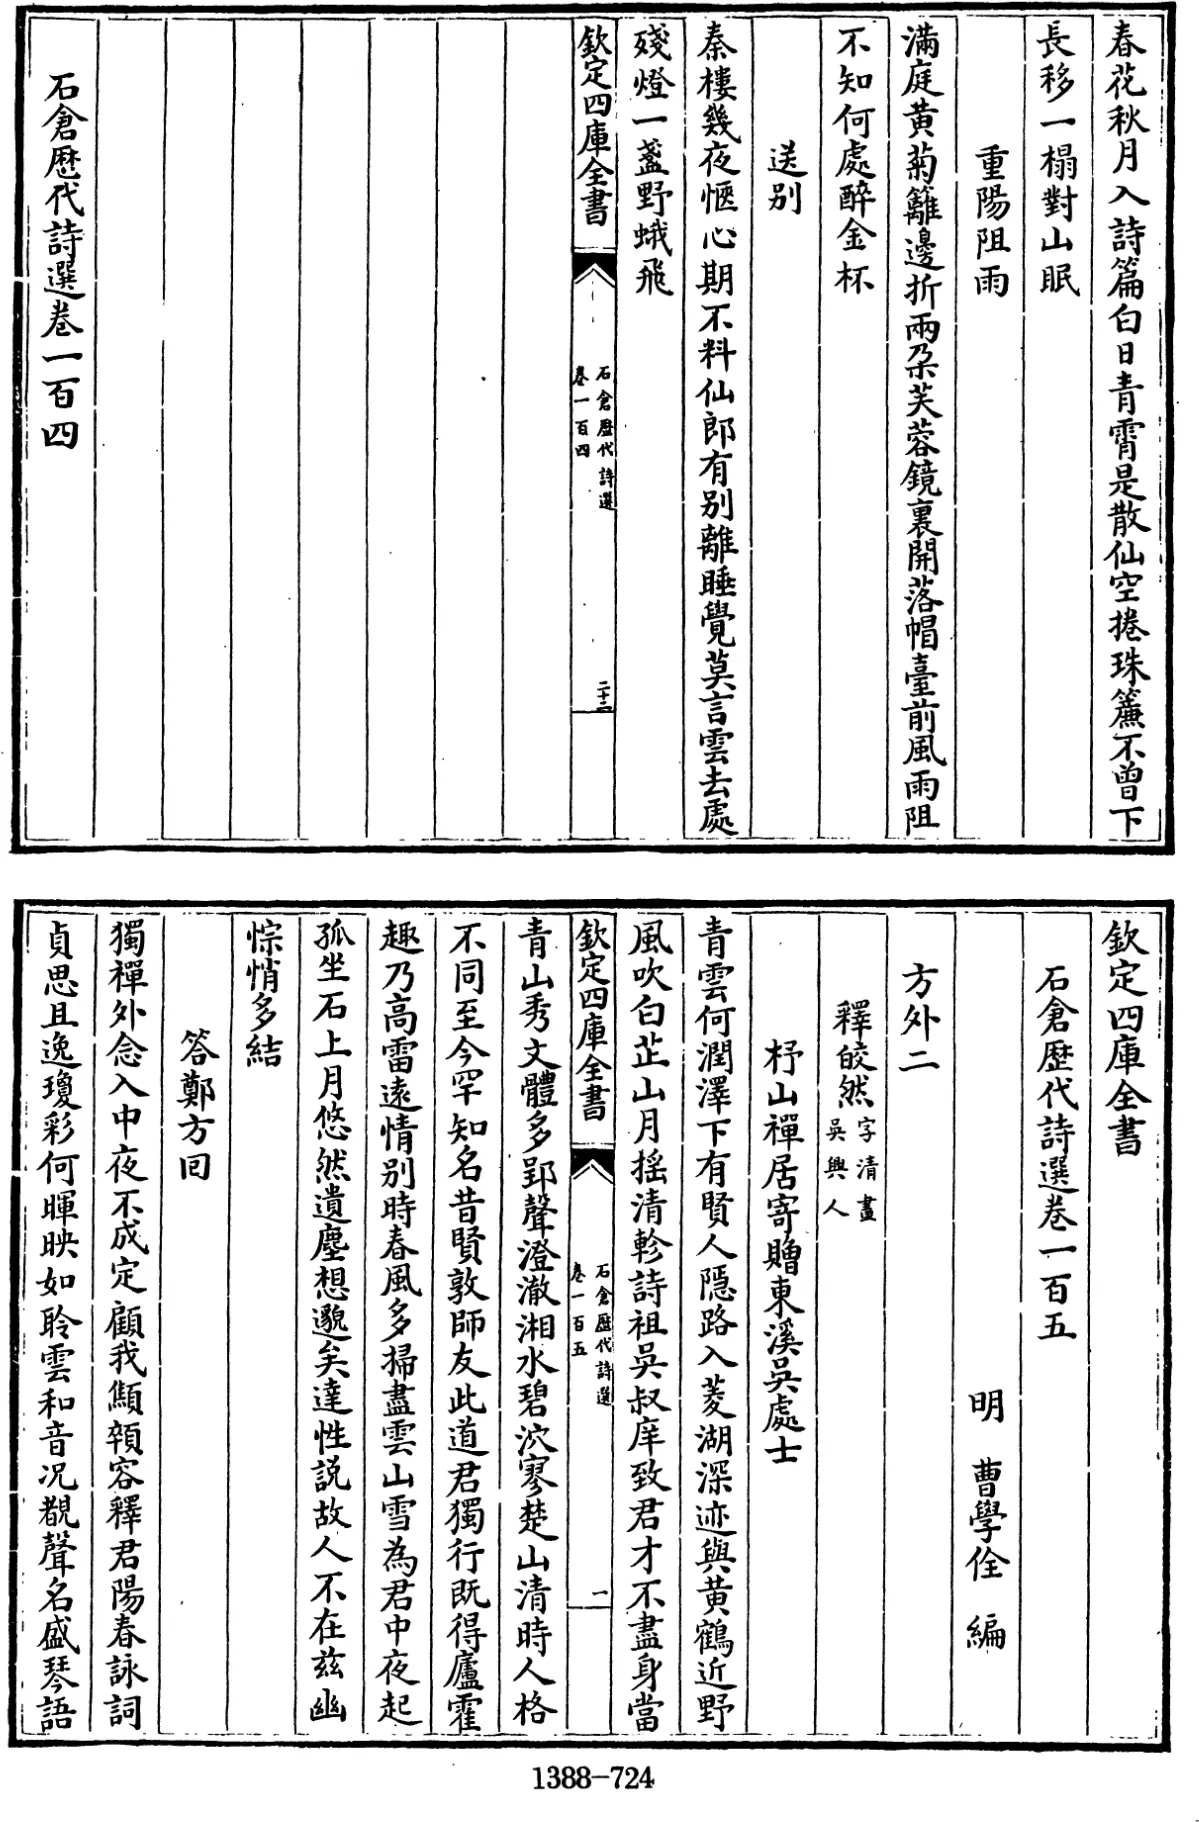 春花秋月入詩篇白日青霄是散仙空捲珠簾不曾下
長移一榻對山眠
重陽阻雨
滿庭黄菊籬邊折兩朶芙蓉鏡裏開落帽臺前風雨阻
不知何處醉金杯
送别
秦樓幾夜愜心期不料仙郎有别離睡覺莫言雲去處
殘燈一盞野蛾飛
欽定四庫全書
石倉歴代詩選
卷一百四
二十三
石倉歴代詩選卷一百四
欽定四庫全書
石倉歴代詩選卷一百五
明 曹學佺 編
方外二
釋皎然字清晝
吳興人
杼山禪居寄贈東溪吳處士
青雲何潤澤下有賢人隱路入菱湖深迹與黄鶴近野
風吹白芷山月揺清軫詩祖吳叔庠致君才不盡身當
欽定四庫全書
石倉歴代詩選
卷一百五
一
青山秀文體多郢聲澄澈湘水碧泬寥楚山清時人格
不同至今罕知名昔賢敦師友此道君獨行既得廬霍
趣乃高雷遠情别時春風多掃盡雲山雪為君中夜起
孤坐石上月悠然遺塵想邈矣達性説故人不在兹幽
悰悄多結
答鄭方回
獨禪外念入中夜不成定顧我顦顇容釋君陽春詠詞
貞思且逸瓊彩何暉映如聆雲和音况覩聲名盛琴語
1388-724